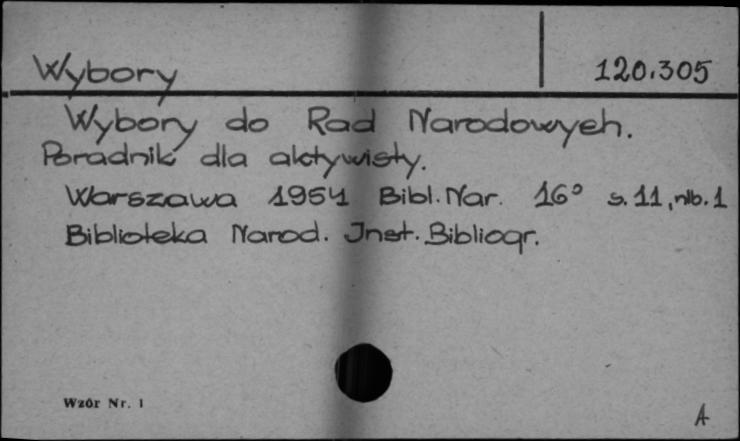 Wybory 120.305
Wybory do Rad Narodowych.
Poradnik dla aktywisty.
Warszawa 1954 Bibl. Nar. 16° s. 11, nlb. 1
Biblioteka Narod. Inst. Bibliogr.
Wzór Nr. 1
A